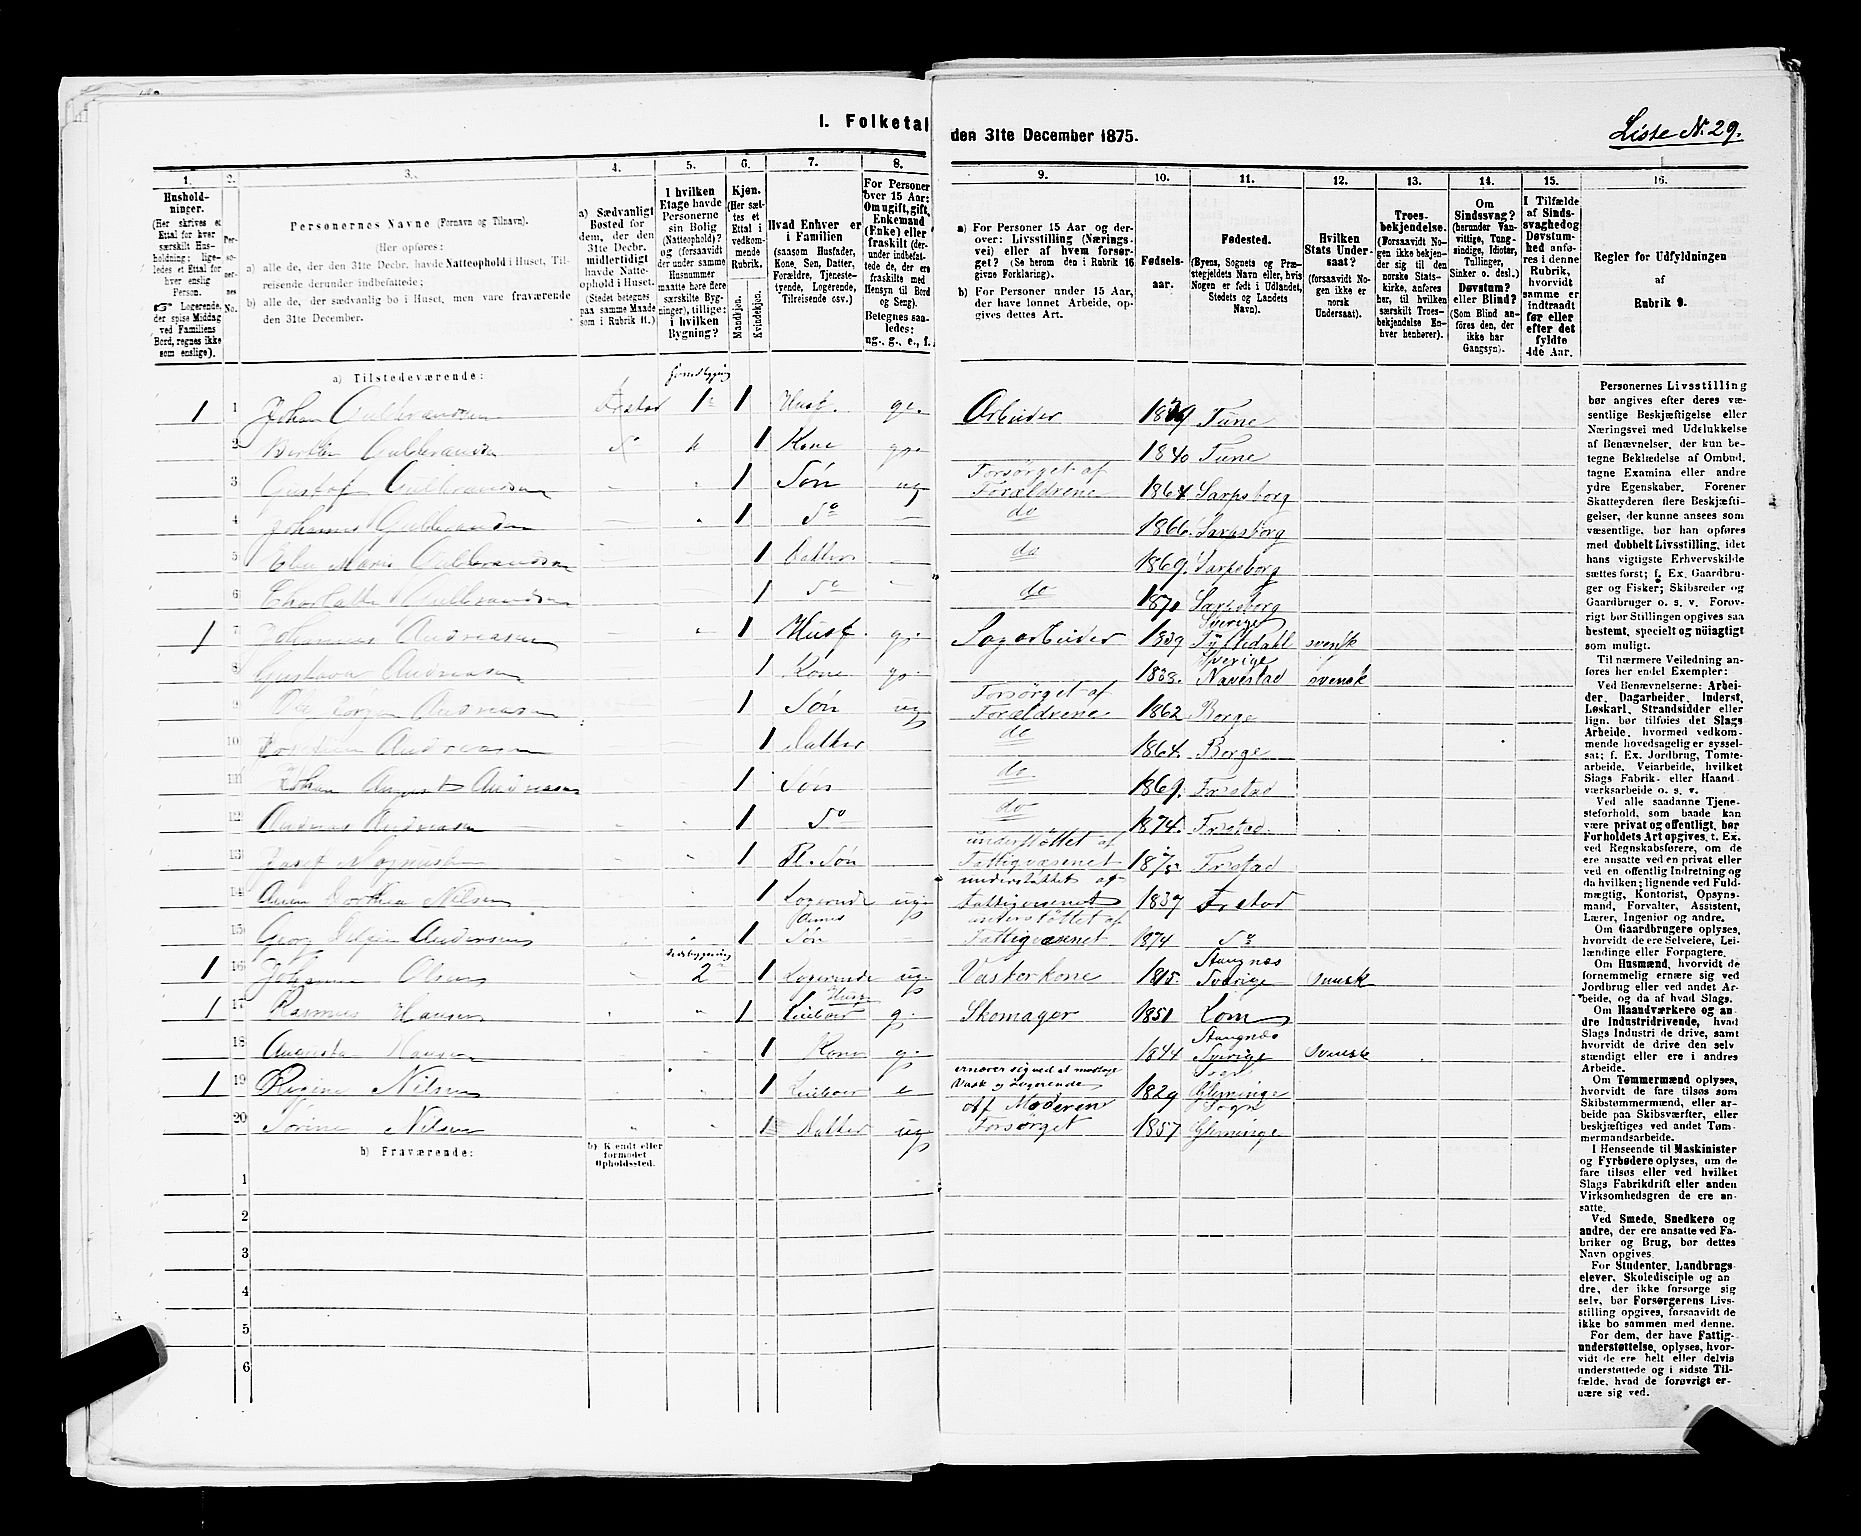 I. Folketal den 31te December 1875.
Liste N. 29.
1. 2. 3. 4. 5. 6. 7. 8. 9. 10. 11. 12. 13. 14. 15. 16.
Hushold-
ninger.
(Her skrives et
Ettal for hver
særskilt Hus-
holdning; lige-
ledes et Ettal for
hver enslig
Person.
☞ Logerende,
der spise Middag
ved Familiens
Bord, regnes ikke
som enslige).
Per-
so-
ner-
nes
No.
Personernes Navne (Fornavn og Tilnavn).
(Her opføres:
a) alle de, der den 31te Decbr. havde Natteophold i Huset, Til-
reisende derunder indbefattede;
b) alle de, der sædvanlig bo i Huset, men vare fraværende
den 31te December.
a) Sædvanligt
Bosted for
dem, der den
31te Decbr.
midlertidigt
havde Natte-
ophold i Huset.
(Stedet betegnes
paa samme Maade
som i Rubrik 11.)
I hvilken
Etage havde
Personerne
sin Bolig
(Natteophold)?
og (forsaavidt
der under samme
Husnummer
maatte høre flere
særskilte Byg-
ninger), tillige:
i hvilken
Bygning?
Kjøn.
(Her sæt-
tes et
Ettal i
vedkom-
mende
Rubrik.
Mandkjøn.
Kvindekjøn.
Hvad Enhver er
i Familien
(saasom Husfader,
Kone, Søn, Datter,
Forældre, Tjeneste-
tyende, Logerende,
Tilreisende osv.)
For Personer
over 15 Aar:
Om ugift, gift,
Enkemand
(Enke) eller
fraskilt (der-
under indbefat-
tede de, der ere
fraskilte med
Hensyn til Bord
og Seng).
Betegnes saa-
ledes:
ug., g., e., f.
a) For Personer 15 Aar og der-
over: Livsstilling (Nærings-
vei) eller af hvem forsør-
get? (Se herom den i Rubrik 16
givne Forklaring).
b) For Personer under 15 Aar,
der have lønnet Arbeide, op-
gives dettes Art.
Fødsels-
aar.
Fødested.
(Byens, Sognets og Præ-
stegjeldets Navn eller, hvis
Nogen er født i Udlandet,
Stedets og Landets
Navn).
Hvilken
Stats Under-
saat?
(forsaavidt No-
gen ikke er
norsk
Undersaat).
Troes-
bekjendelse.
(Forsaavidt No-
gen ikke bekjen-
der sig til den
norske Stats-
kirke, anføres
her, til hvilken
særskilt Troes-
bekjendelse En-
hver henhører).
Om
Sindssvag?
(herunder Van-
vittige, Tung-
sindige, Idioter,
Tullinger,
Sinker o. desl.)
Døvstum?
eller Blind?
(Som Blind an-
føres den, der
ikke har
Gangsyn).
I Tilfælde
af Sinds-
svaghed og
Døvstum-
hed anfø-
res i denne
Rubrik,
hvorvidt
samme er
indtraadt
før eller
efter det
fyldte
4de Aar.
Regler for Udfyldningen
af
Rubrik 9.
a) Tilstedeværende:
1 1 Johan Gulbrandsen Frstad 1 1 Husf. g. Arbeider Tune
2 Gulbrandsen 1 Kone 1840 Tune
3 Gustaf Gulbrandsen 1 Søn ug Forsørget af Forældrene 1864 Sarpsborg
4 Johannes Gulbrandsen 1 do do 1866. Sarpsborg
5 Marie Gulbrandsen 1 Datter do 1869. Sarpsborg
6 Gulbrandsen 1 do do Sarpsborg
1 7 Johannes Andreasen 1 Husf. g. Sagarbeider 1839 Sverige svensk
8 Gustava Andreasen 1 Kone g. 1833. Sverige Navestad svensk
9 Andreasen 1 Søn ug Forsørget af Forældrene 1862 Borge
10 Andreasen 1 Datter do 1864. Borge
11 Johan August Andreasen 1 Søn do 1869. Frstad
12 Andreas Andreasen 1 do do 1874. Frstad.
13 Josef 1 Pl. Søn understøttet af Fattigvæsenet 1875 Frstad
14 Anne Dorthea Nilsen 1 Logerende ug. understøttet af Fattigvæsenet 1839 Frstad
15 Georg Andersen 1 Søn understøttet af Fattigvæsenet 1874 do
1 16 Olsen 2 1 Logerende ug. Vaskerkone 1815. Sverige svensk
1 17 Rasmus Hansen 1 Leieboer g. Skomager 1851 Lom
18 Augusta Hansen 1 Kone g. 1844 Sverige svensk
1 19 Regine Nilsen 1 Leieboer e ernærer sig ved at modtage Vask og Logerende 1829 Glemminge Sogn
20 Sørine Nilsen 1 Datter ug. Af Moderen Forsørget 1857. Glemminge Sogn
b) Fraværende:
b) Kjendt eller
formodet
Opholdssted.
1
2
3
4
5
6
Personernes Livsstilling
bør angives efter deres væ-
sentlige Beskjæftigelse eller
Næringsvei med Udelukkelse
af Benævnelser, der kun be-
tegne Beklædelse af Ombud,
tagne Examina eller andre
ydre Egenskaber. Forener
Skatteyderen flere Beskjæfti-
gelser, der kunne ansees som
væsentlige, bør han opføres
med dobbelt Livsstilling, idet
hans vigtigste Erhvervskilde
sættes først; f. Ex. Gaardbru-
ger og Fisker; Skibsreder og
Gaardbruger o. s. v. Forøv-
rigt bør Stillingen opgives saa
bestemt, specielt og nøiagtigt
som muligt.
Til nærmere Veiledning an-
føres her endel Exempler:
Ved Benævnelserne: Arbei-
der, Dagarbeider, Inderst,
Løskarl, Strandsidder eller
lign. bør tilføies det Slags
Arbeide, hvormed vedkom-
mende hovedsagelig er syssel-
sat; f. Ex. Jordbrug, Tomte-
arbeide, Veiarbeide, hvilket
Slags Fabrik- eller Haand-
værksarbeide o. s. v.
Ved alle saadanne Tjene-
steforhold, som baade kan
være privat og offentligt, bør
Forholdets Art opgives, t. Ex.
ved Regnskabsførere, om de
ere ansatte ved en privat eller
ved en offentlig Indretning og
da hvilken; lignende ved Fuld-
mægtig, Kontorist, Opsyns-
mand, Forvalter, Assistent,
Lærer, Ingeniør og andre.
Om Gaardbrugere oplyses,
hvorvidt de ere Selveiere, Lei-
lændinge eller Forpagtere.
Om Husmænd, hvorvidt de
fornemmelig ernære sig ved
Jordbrug eller ved andet Ar-
beide, og da af hvad Slags.
Om Haandværkere og an-
dre Industridrivende, hvad
Slags Industri de drive, samt
hvorvidt de drive den selv-
stændigt eller ere i andres
Arbeide.
Om Tømmermænd oplyses,
hvorvidt de fare tilsøs som
Skibstømmermænd, eller ar-
beide paa Skibsværfter, eller
beskjæftiges ved andet Tøm-
mermandsarbeide.
I Henseende til Maskinister
og Fyrbødere oplyses, om de
fare tilsøs eller ved hvilket
Slags Fabrikdrift eller anden
Virksomhedsgren de ere an-
satte.
Ved Smede, Snedkere og
andre, der ere ansatte ved Fa-
briker og Brug, bør dettes
Navn opgives.
For Studenter, Landbrugs-
elever, Skoledisciple og an-
dre, der ikke forsørge sig
selv, bør Forsørgerens Livs-
stilling opgives, forsaavidt de
ikke bo sammen med denne.
For dem, der have Fattig-
understøttelse, oplyses, hvor-
vidt de ere helt eller delvis
understøttede og i sidste Til-
fælde, hvad de forøvrigt er-
nære sig ved.